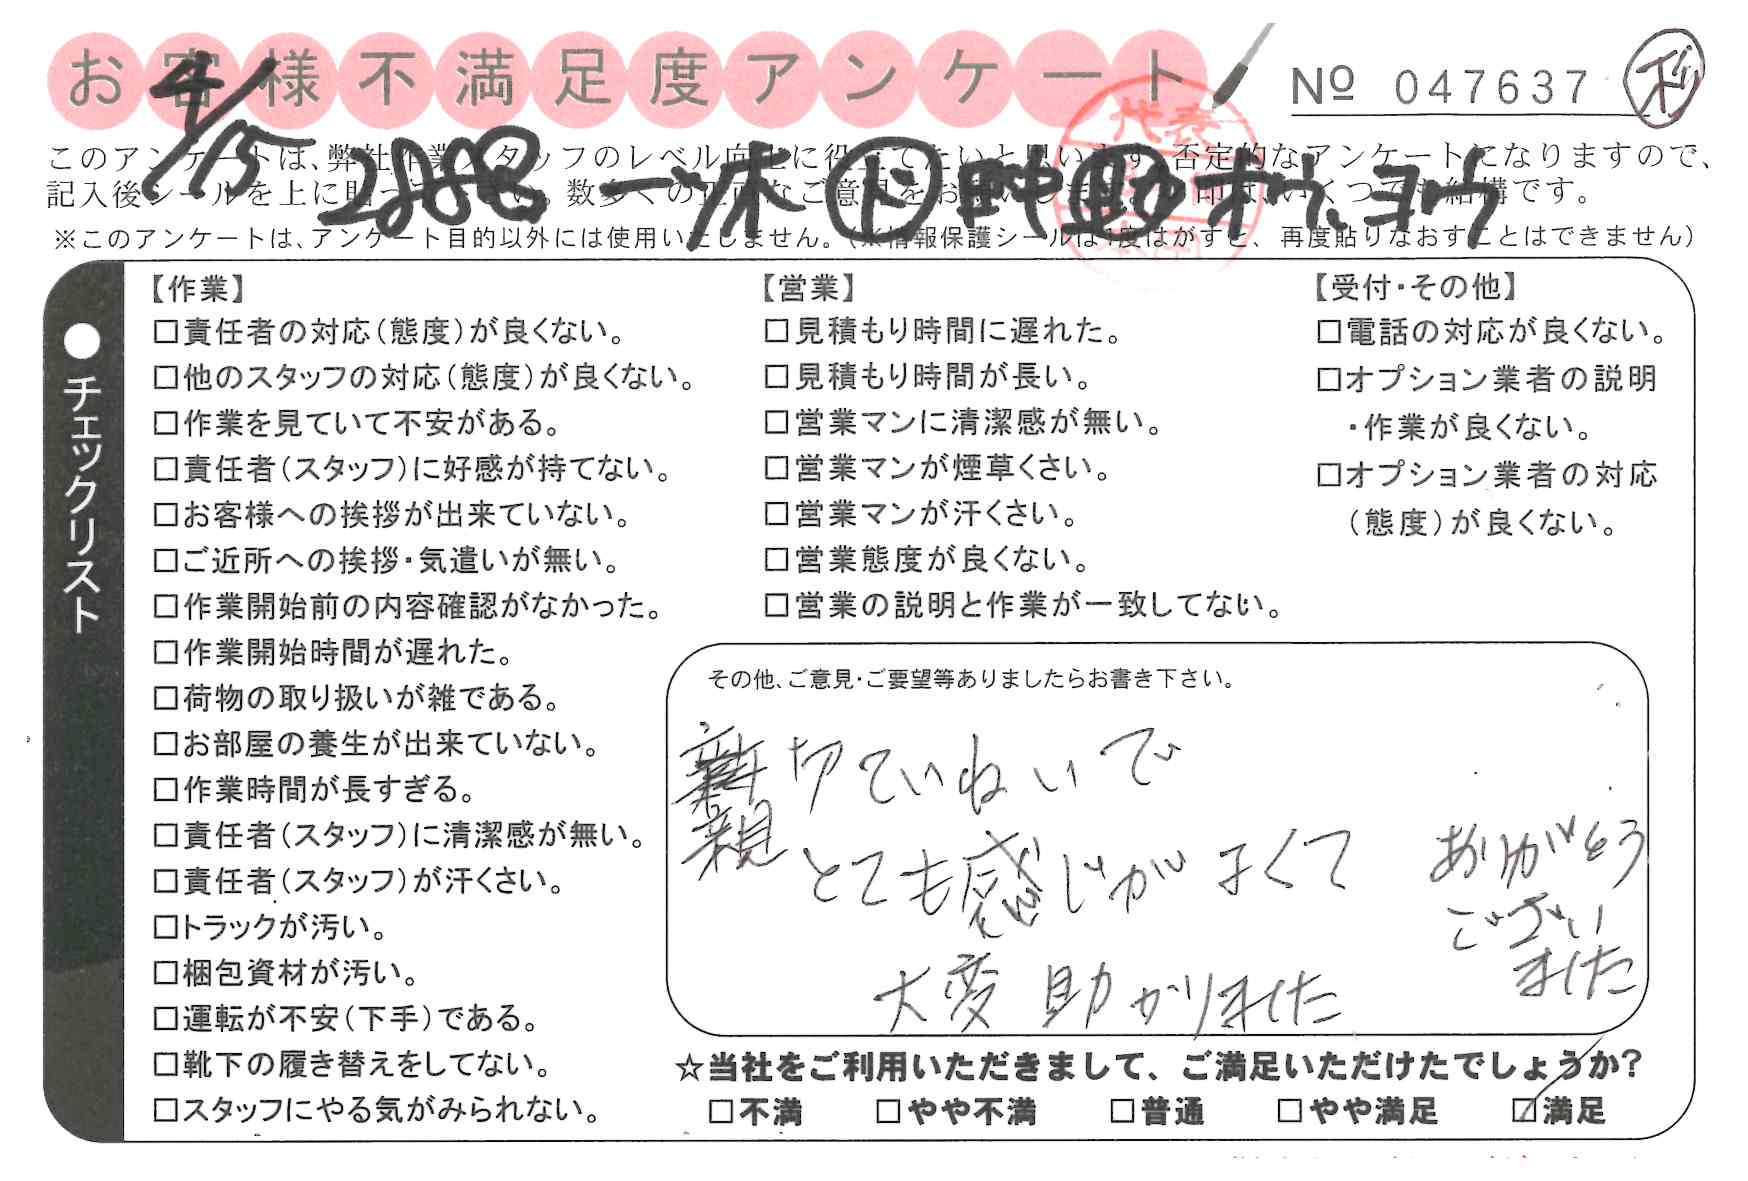 お客様不満足度アンケート
Nº 047637
4/15
このアンケートは、弊社作業スタッフのレベル向上に役立てたいと思います。否定的なアンケートになりますので、
記入後シールを上に貼って下さい。数多くの正直なご意見をお願いします。
※このアンケートは、アンケート目的以外には使用いたしません。(※情報保護シールは1度はがすと、再度貼りなおすことはできません)
●チェックリスト
【作業】
□責任者の対応(態度)が良くない。
□他のスタッフの対応(態度)が良くない。
□作業を見ていて不安がある。
□責任者(スタッフ)に好感が持てない。
□お客様への挨拶が出来ていない。
□ご近所への挨拶・気遣いが無い。
□作業開始前の内容確認がなかった。
□作業開始時間が遅れた。
□荷物の取り扱いが雑である。
□お部屋の養生が出来ていない。
□作業時間が長すぎる。
□責任者(スタッフ)に清潔感が無い。
□責任者(スタッフ)が汗くさい。
□トラックが汚い。
□梱包資材が汚い。
□運転が不安(下手)である。
□靴下の履き替えをしてない。
□スタッフにやる気がみられない。
【営業】
□見積もり時間に遅れた。
□見積もり時間が長い。
□営業マンに清潔感が無い。
□営業マンが煙草くさい。
□営業マンが汗くさい。
□営業態度が良くない。
□営業の説明と作業が一致してない。
【受付・その他】
□電話の対応が良くない。
□オプション業者の説明
・作業が良くない。
□オプション業者の対応
(態度)が良くない。
その他、ご意見・ご要望等ありましたらお書き下さい。
親切ていねいで
とても感じがよくて
大変助かりました
ありがとう
ござい
ました
☆当社をご利用いただきまして、ご満足いただけたでしょうか?
□不満 □やや不満 □普通 □やや満足 ☑満足